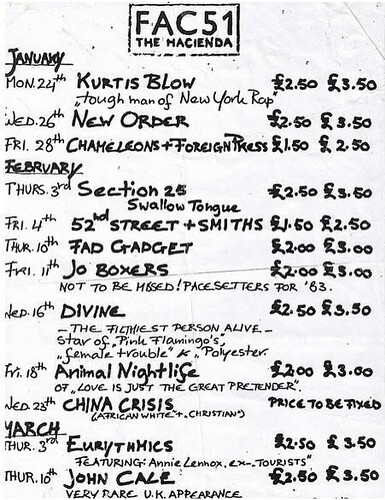 FAC51
THE HACIENDA
JANUARY
MON. 24th KURTIS BLOW £2.50 £3.50
„tough man of New York Rap"
WED. 26th NEW ORDER £2.50 £3.50
FRI. 28th CHAMELEONS + FOREIGN PRESS £1.50 £2.50
FEBRUARY
THURS. 3rd Section 25 £2.50 £3.50
Swallow Tongue
FRI. 4th 52nd STREET + SMITHS £1.50 £2.50
THUR. 10th FAD GADGET £2.00 £3.00
FRI. 11th JO BOXERS £2.00 £3.00
NOT TO BE MISSED! PACESETTERS FOR '83.
WED. 16th DIVINE £2.50 £3.50
– THE FILTHIEST PERSON ALIVE –
Star of „Pink Flamingo's",
„female trouble" & „Polyester.
Fri. 18th Animal Nightlife £2.00 £3.00
OF „LOVE IS JUST THE GREAT PRETENDER".
WED. 23th CHINA CRISIS PRICE TO BE FIXED
(AFRICAN WHITE + „CHRISTIAN")
MARCH
THUR. 3rd EURYTHMICS £2.50 £3.50
FEATURING: Annie Lennox, ex-„TOURISTS"
THUR. 10th JOHN CALE £2.50 £3.50
VERY RARE U.K. APPEARANCE